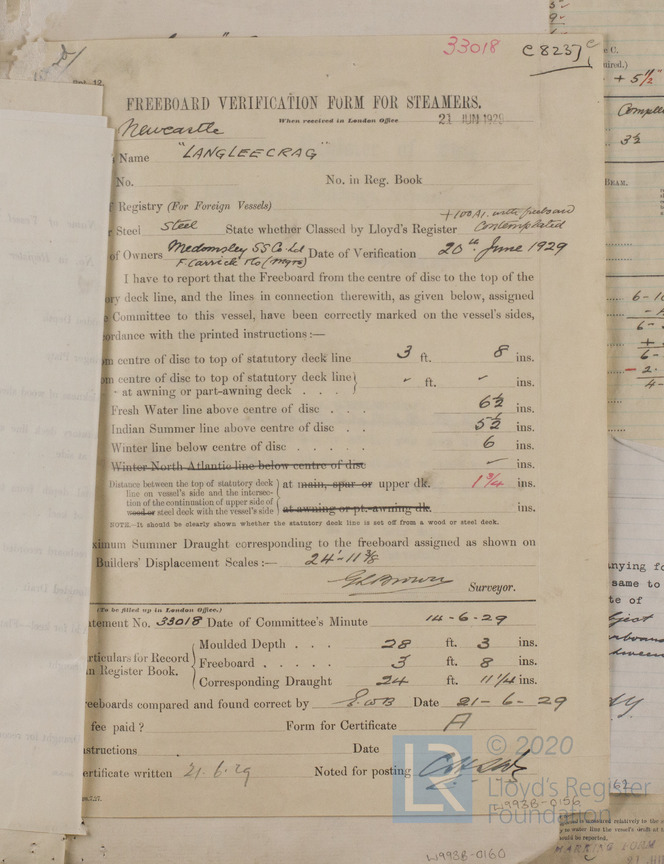 33018 C 8237
FREEBOARD VERIFICATION FORM FOR STEAMERS.
When received in London Office 21 JUN 1929
Newcastle
Name "LANGLEECRAG"
No. No. in Reg. Book
Registry (For Foreign Vessels)
+100A1. with freeboard
Steel Steel State whether Classed by Lloyd's Register Contemplated
of Owners Medomsley SS Co. Ld Date of Verification 20th June 1929
F. Carrick & Co (Mgrs)
I have to report that the Freeboard from the centre of disc to the top of the
ory deck line, and the lines in connection therewith, as given below, assigned
Committee to this vessel, have been correctly marked on the vessel's sides,
ordance with the printed instructions:—
om centre of disc to top of statutory deck line 3 ft. 8 ins.
om centre of disc to top of statutory deck line
at awning or part-awning deck . . . - ft. - ins.
Fresh Water line above centre of disc . . . 6½ ins.
Indian Summer line above centre of disc . . 5½ ins.
Winter line below centre of disc . . . . . 6 ins.
Winter North Atlantic line below centre of disc - ins.
Distance between the top of statutory deck
line on vessel's side and the intersec-
tion of the continuation of upper side of
wood or steel deck with the vessel's side
at main, spar or upper dk. 1¾ ins.
at awning or pt.-awning dk. ins.
NOTE.—It should be clearly shown whether the statutory deck line is set off from a wood or steel deck.
ximum Summer Draught corresponding to the freeboard assigned as shown on
Builders' Displacement Scales:— 24'-11⅜
Surveyor.
(To be filled up in London Office.)
atement No. 33018 Date of Committee's Minute 14-6-29
articulars for Record
n Register Book.
Moulded Depth . . . 28 ft. 3 ins.
Freeboard . . . . . 3 ft. 8 ins.
Corresponding Draught 24 ft. 11¼ ins.
eeboards compared and found correct by Date 21-6-29
fee paid? Form for Certificate A
nstructions Date
ertificate written 21.6.29 Noted for posting
LR
© 2020
Lloyd's Register
Foundation
W993B-0156
W993B-0160